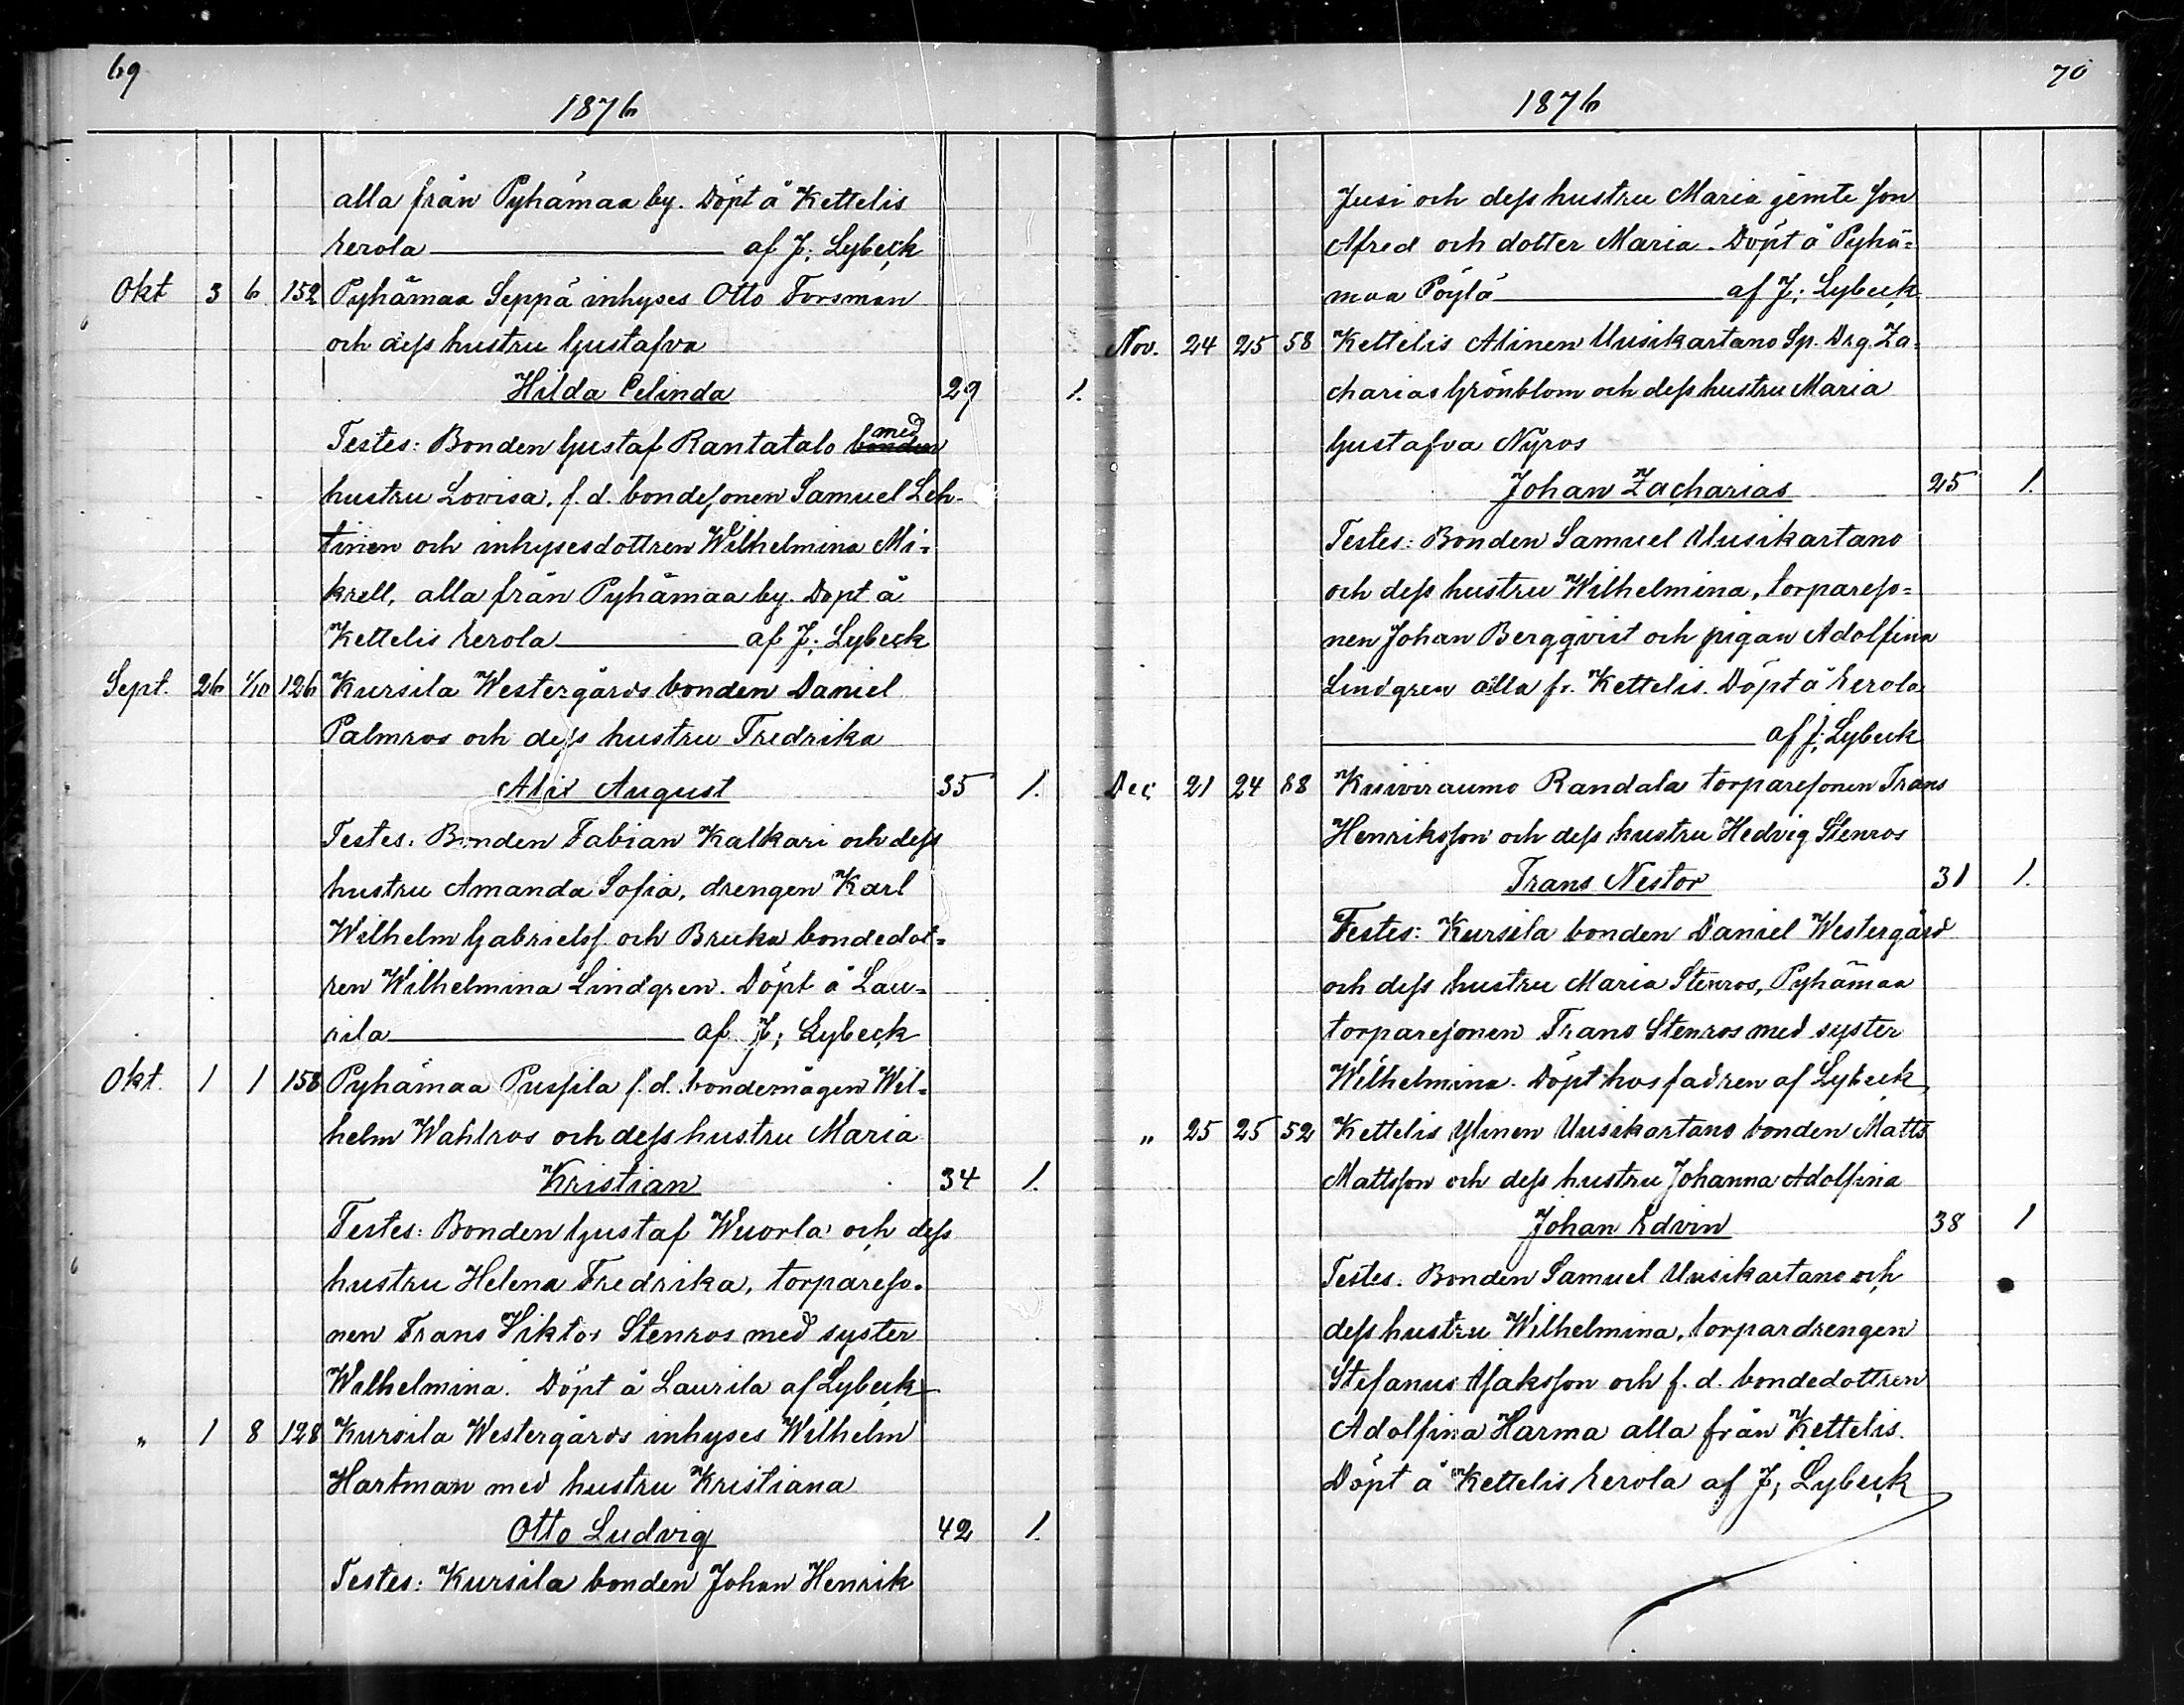 69
1876
alla från Pyhämaa by. Döpt å Kettelis
Eerola — af J; Lybeck
Okt 3 6 152 Pyhämaa Seppä inhyses Otto Forsman
och dess hustru Gustafva
Hilda Celinda 29 1.
Testes: Bonden Gustaf Rantatalo bonden med
hustru Lovisa, f.d. bondesonen Samuel Leh-
tinen och inhysesdottren Wilhelmina Mi-
krell, alla från Pyhämaa by. Döpt å
Kettelis Eerola — af J; Lybeck
Sept. 26 1/10 126 Kursila Westergårds bonden Daniel
Palmros och dess hustru Fredrika
Alix August 35 1.
Testes: Bonden Fabian Kalkari och dess
hustru Amanda Sofia, drengen Karl
Wilhelm Gabrielss. och Bruka bondedot-
ren Wilhelmina Lindgren. Döpt å Lau-
rila — af J; Lybeck
Okt. 1 1 158 Pyhämaa Pussila f.d. bondemågen Wil-
helm Wahlros och dess hustru Maria
Kristian 34 1.
Testes: Bonden Gustaf Wuorla och dess
hustru Helena Fredrika, torpareso-
nen Frans Viktor Stenros med syster
Wilhelmina. Döpt å Laurila af Lybeck
„ 1 8 128 Kursila Westergårds inhyses Wilhelm
Hartman med hustru Kristiana
Otto Ludvig 42 1.
Testes: Kursila bonden Johan Henrik
70
1876
Jusi och dess hustru Maria jemte son
Afred och dotter Maria. Döpt å Pyhä-
maa Pöylä — af J; Lybeck
Nov. 24 25 58 Kettelis Alinen Uusikartano Sp. Drg. Za-
charias Grönblom och dess hustru Maria
Gustafva Nyros
Johan Zacharias 25 1.
Testes: Bonden Samuel Uusikartano
och dess hustru Wilhelmina, torpareso-
nen Johan Bergqvist och pigan Adolfina
Lindgren alla fr. Kettelis. Döpt å Eerola
— af J; Lybeck
Dec. 21 24 88 Kuiviraumo Randala torparesonen Frans
Henriksson och dess hustru Hedvig Stenros
Frans Nestor 31 1.
Testes: Kursila bonden Daniel Westergård
och dess hustru Maria Stenros, Pyhämaa
torparesonen Frans Stenros med syster
Wilhelmina. Döpt hos fadren af Lybeck
„ 25 25 52 Kettelis Ylinen Uusikartano bonden Matts
Mattsson och dess hustru Johanna Adolfina
Johan Edvin 38 1
Testes. Bonden Samuel Uusikartano och
dess hustru Wilhelmina, torpardrengen
Stefanus Isaksson och f.d. bondedottren
Adolfina Harma alla från Kettelis.
Döpt å Kettelis Eerola af J; Lybeck